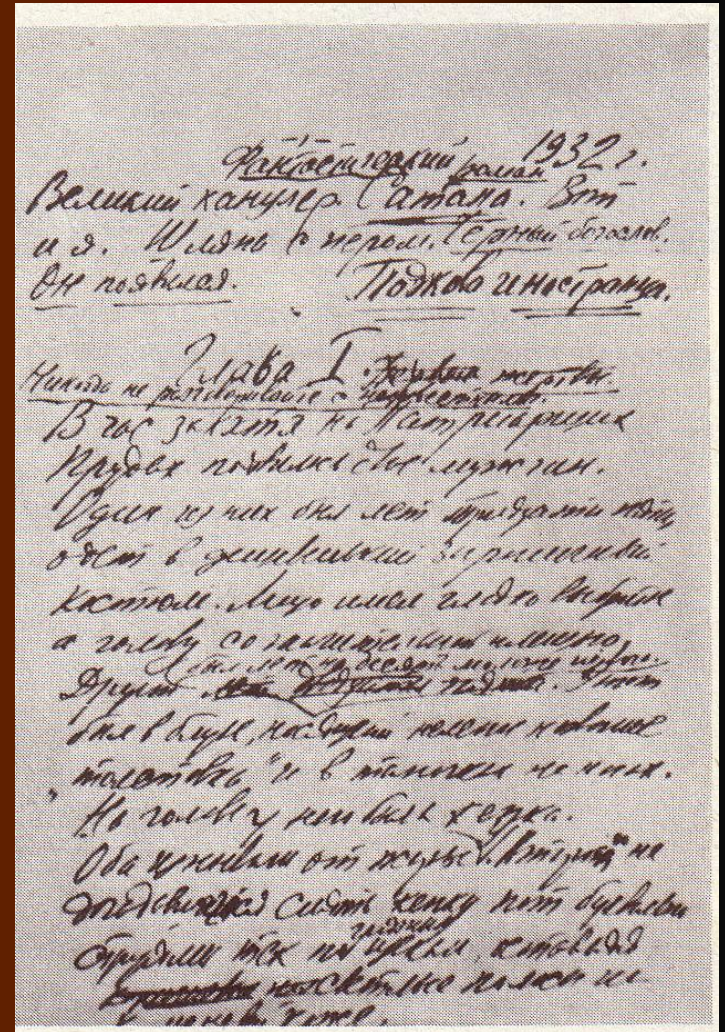 Фантастический роман 1932 г.
Великий канцлер. Сатана. Вот
и я. Шляпа с пером. Черный богослов.
Он появился. Подкова иностранца.
Глава I. Первая жертва.
Никогда не разговаривайте с неизвестными.
В час заката на Патриарших
Прудах появилось двое мужчин.
Один из них был лет тридцати пяти,
одет в дешевенький заграничный
костюм. Лицо имел гладко выбритое
а голову со значительной плешью.
был лет на десять моложе первого.
Другой лет. Этот
был в блузе, носящей нелепое название
„толстовка" и в тапочках на ногах.
На голове у него была кепка.
Оба изнывали от жары. У второго не
догадавшегося снять кепку пот буквально
струями тек по грязным щекам, оставляя
коричневой коже.